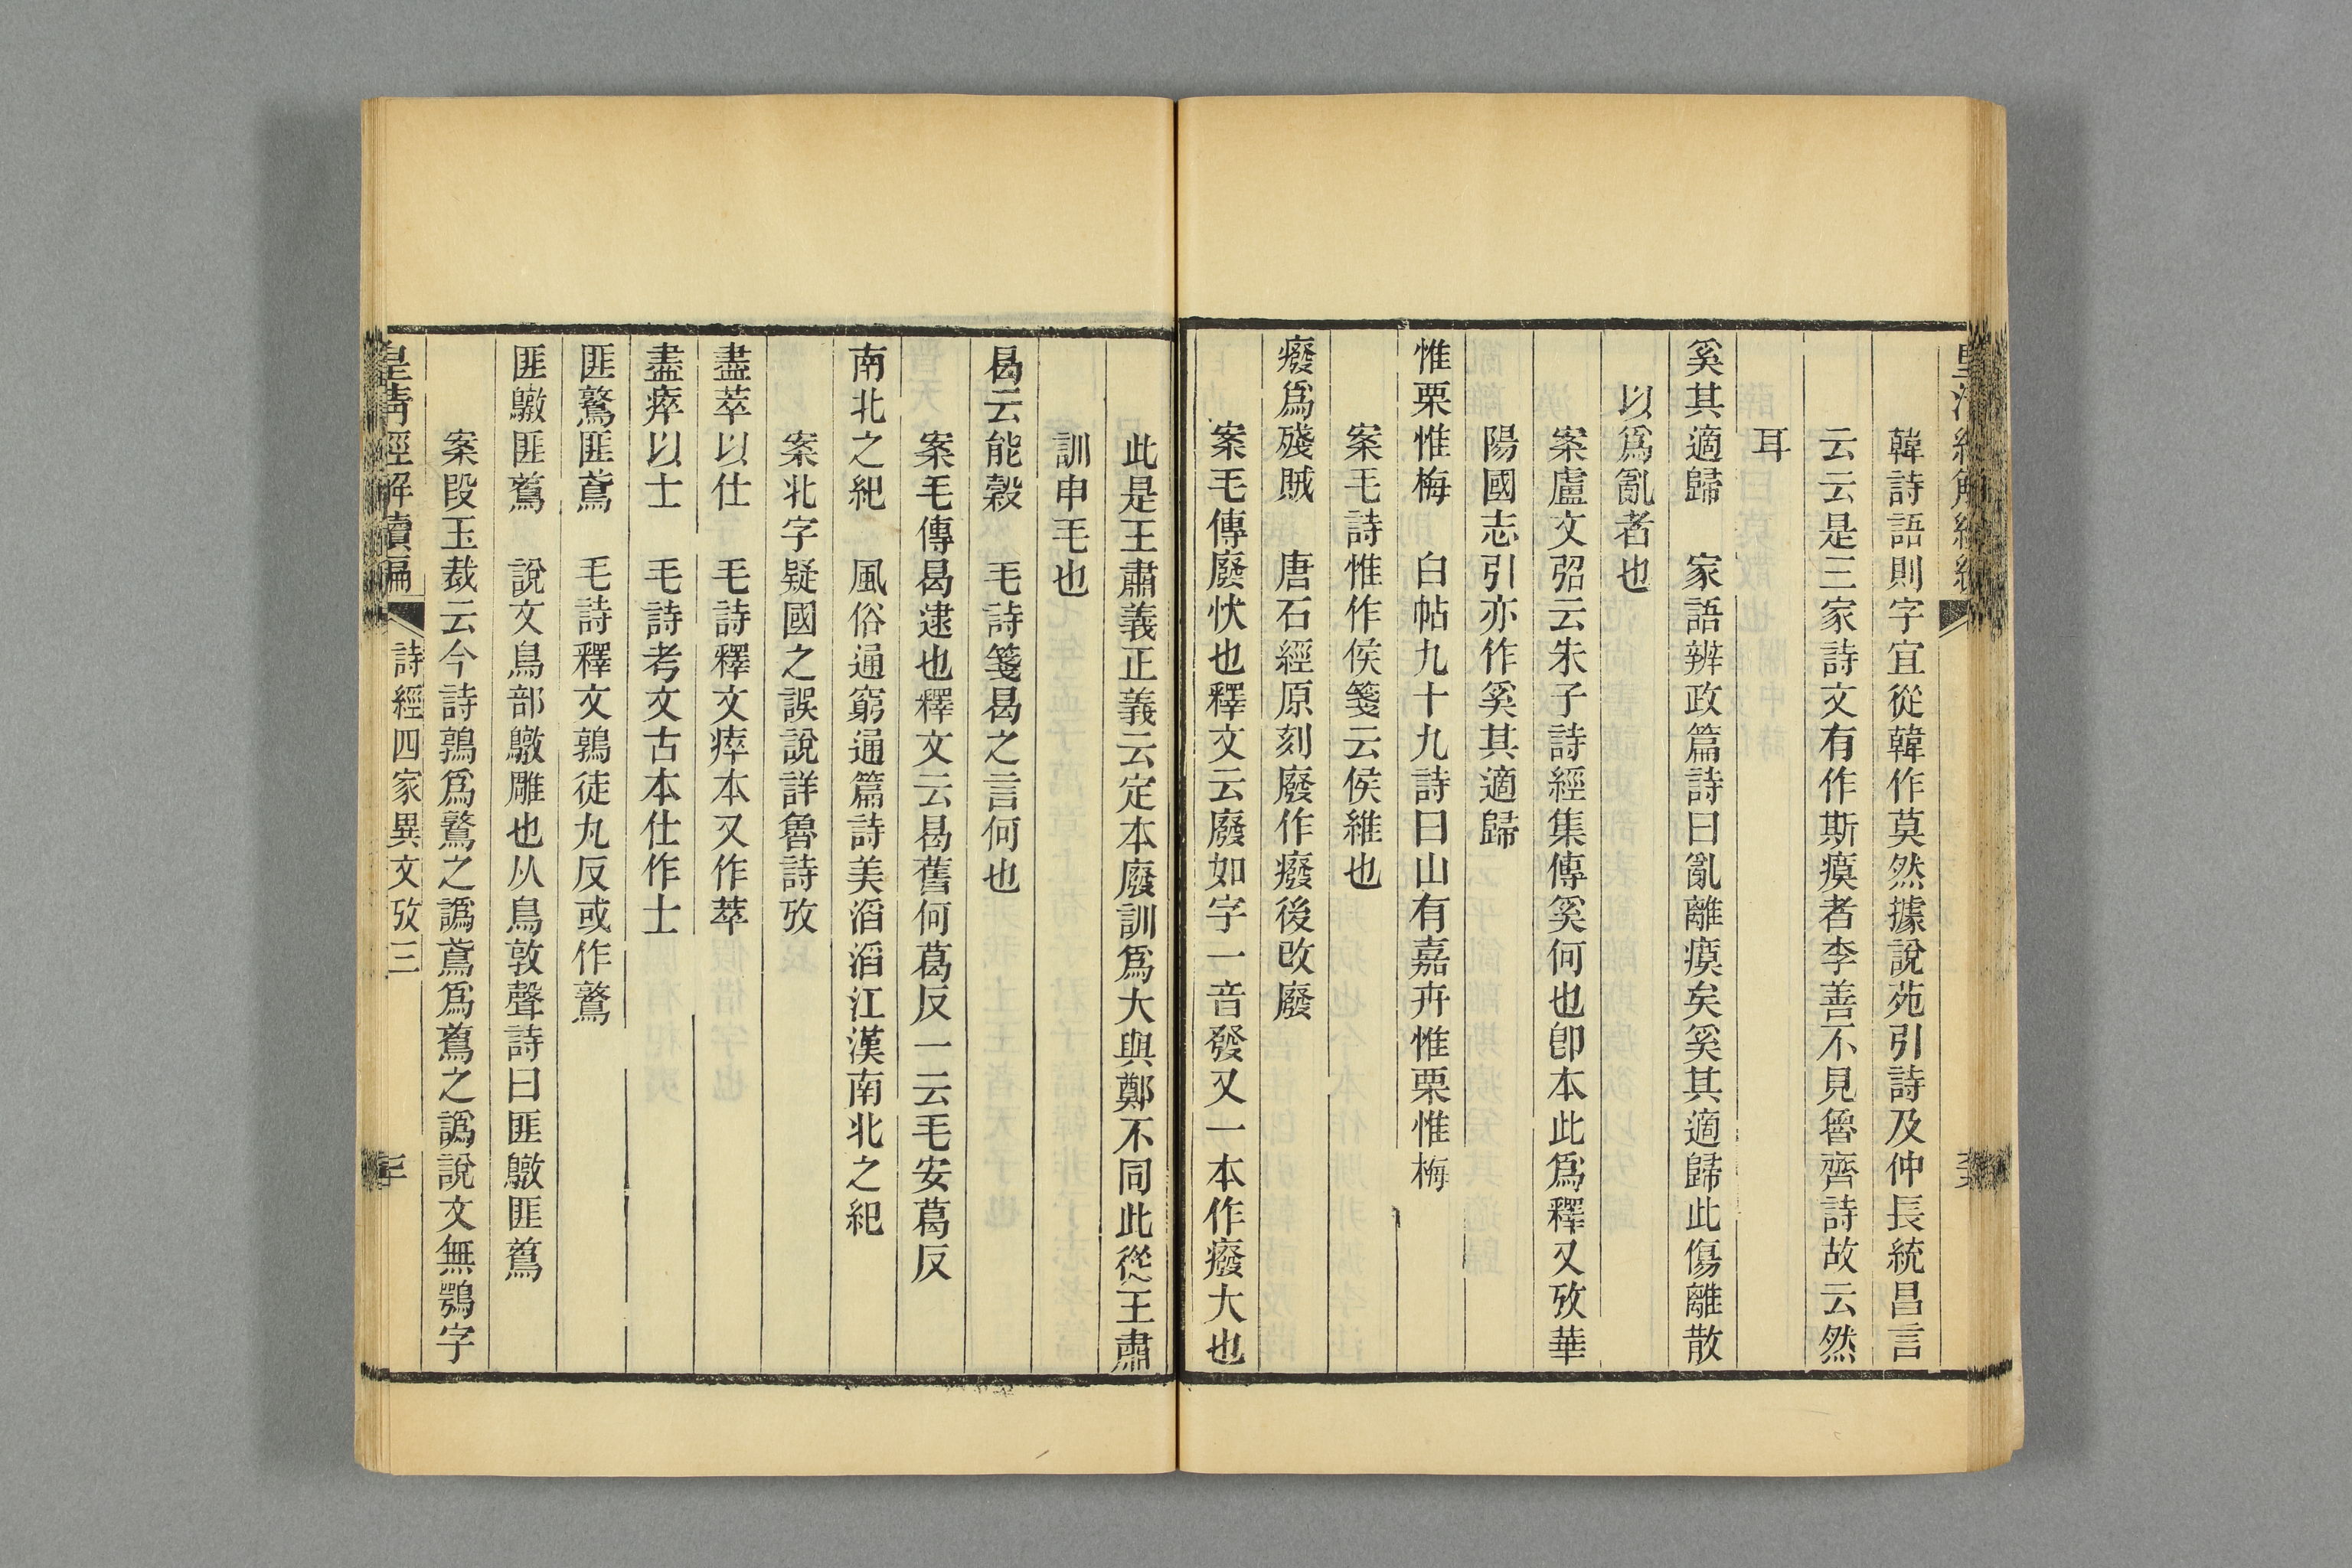 韓詩語則字宜從韓作莫然據說苑引詩及仲長統昌言
云云是三家詩文有作斯瘼者李善不見魯齊詩故云然
耳
奚其適歸　家語辨政篇詩曰亂離瘼矣奚其適歸此傷離散
以爲亂者也
案盧文弨云朱子詩經集傳奚何也卽本此爲釋又攷華
陽國志引亦作奚其適歸
惟栗惟梅　白帖九十九詩曰山有嘉卉惟栗惟梅
案毛詩惟作侯箋云侯維也
癈爲殘賊　唐石經原刻廢作癈後改廢
案毛傳廢忕也釋文云廢如字一音發又一本作癈大也
此是王肅義正義云定本廢訓爲大與鄭不同此從王肅
訓申毛也
曷云能穀　毛詩箋曷之言何也
案毛傳曷逮也釋文云曷舊何葛反一云毛安葛反
南北之紀　風俗通窮通篇詩美滔滔江漢南北之紀
案北字疑國之誤說詳魯詩攷
盡萃以仕　毛詩釋文瘁本又作萃
盡瘁以士　毛詩考文古本仕作士
匪鷻匪鳶　毛詩釋文鶉徒丸反或作鷻
匪䵊匪鷻　說文鳥部䵊雕也从鳥敦聲詩曰匪䵊匪鷻
案段玉裁云今詩鶉爲鷻之譌鳶爲鷻之譌說文無鶚字
皇清經解續編　詩經四家異文攷三